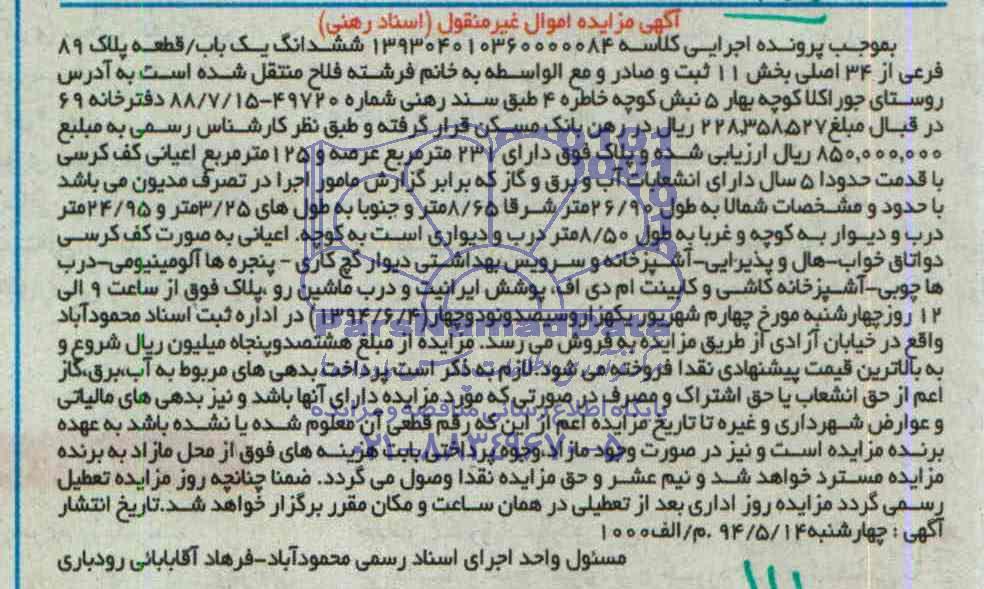 آگهی مزایده اموال غیرمنقول (اسناد رهنی)
بموجب پرونده اجرایی کلاسه ۱۳۹۳۰۴۰۱۰۳۶۰۰۰۰۰۸۴ ششدانگ یک باب/قطعه پلاک ۸۹
فرعی از ۳۴ اصلی بخش ۱۱ ثبت و صادر و مع الواسطه به خانم فرشته فلاح منتقل شده است به آدرس
روستای جوراکلا کوچه بهار ۵ نبش کوچه خاطره ۴ طبق سند رهنی شماره ۴۹۷۲۰-۸۸/۷/۱۵ دفترخانه ۶۹
در قبال مبلغ ۲۲۸،۳۵۸،۵۲۷ ریال در رهن بانک مسکن قرار گرفته و طبق نظر کارشناس رسمی به مبلبع
۸۵۰،۰۰۰،۰۰۰ ریال ارزیابی شده و پلاک فوق دارای ۲۳۱ مترمربع عرصه و ۱۲۵مترمربع اعیانی کف کرسی
با قدمت حدودا ۵ سال دارای انشعابات آب و برق و گاز که برابر گزارش مامور اجرا در تصرف مدیون می باشد
با حدود و مشخصات شمالا به طول ۲۶/۹۰متر شرقا ۸/۶۵متر و جنوبا به طول های ۳/۲۵متر و ۲۴/۹۵متر
درب و دیوار به کوچه و غربا به طول ۸/۵۰متر درب و دیواری است به کوچه. اعیانی به صورت کف کرسی
دواتاق خواب-هال و پذیرایی-آشپزخانه و سرویس بهداشتی دیوار گچ کاری - پنجره ها آلومینیومی-درب
ها چوبی-آشپزخانه کاشی و کابینت ام دی اف، پوشش ایرانیت و درب ماشین رو ،پلاک فوق از ساعت ۹ الی
۱۲ روز چهارشنبه مورخ چهارم شهریور یکهزاروسیصدونودوچهار(۱۳۹۴/۶/۴) در اداره ثبت اسناد محمودآباد
واقع در خیابان آزادی از طریق مزایده به فروش می رسد. مزایده از مبلغ هشتصدوپنجاه میلیون ریال شروع و
به بالاترین قیمت پیشنهادی نقدا فروخته می شود.لازم به ذکر است پرداخت بدهی های مربوط به آب،برق،گاز
اعم از حق انشعاب یا حق اشتراک و مصرف در صورتی که مورد مزایده دارای آنها باشد و نیز بدهی های مالیاتی
و عوارض شهرداری و غیره تا تاریخ مزایده اعم از این که رقم قطعی آن معلوم شده یا نشده باشد به عهده
برنده مزایده است و نیز در صورت وجود مازاد،وجوه پرداختی بابت هزینه های فوق از محل مازاد به برنده
مزایده مسترد خواهد شد و نیم عشر و حق مزایده نقدا وصول می گردد. ضمنا چنانچه روز مزایده تعطیل
رسمی گردد مزایده روز اداری بعد از تعطیلی در همان ساعت و مکان مقرر برگزار خواهد شد.تاریخ انتشار
آگهی : چهارشنبه ۹۴/۵/۱۴ .م/الف۱۰۰۰
مسئول واحد اجرای اسناد رسمی محمودآباد-فرهاد آقابابائی رودباری
ParsNamadData
پایگاه اطلاع رسانی مناقصه و مزایده
۰۲۱-۸۸۳۴۹۶۷۰-۵